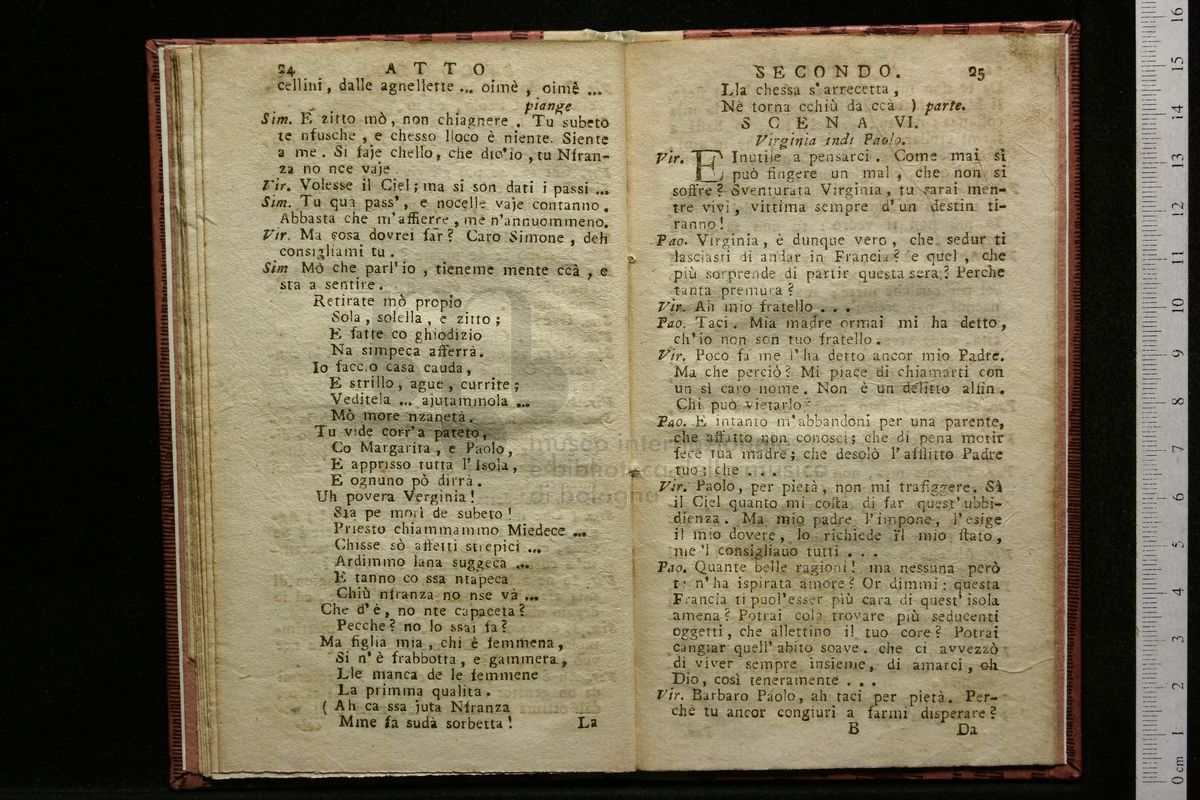 24 ATTO
cellini, dalle agnellette ... oimè, oimè ...
piange
Sim. E zitto mò, non chiagnere. Tu subeto
te nfusche, e chesso lloco è niente. Siente
a me. Si faje chello, che dic'io, tu Nfran-
za no nce vaje
Vir. Volesse il Ciel; ma si son dati i passi ...
Sim. Tu quà pass', e nocelle vaje contanno.
Abbasta che m'affierre, me n'annuommeno.
Vir. Ma cosa dovrei far? Caro Simone, deh
consigliami tu.
Sim Mò che parl'io, tieneme mente ccà, e
sta a sentire.
Retirate mò propio
Sola, solella, e zitto;
E fatte co ghiodizio
Na simpeca afferrà.
Io faccio casa cauda,
E strillo, ague, currite;
Veditela ... ajutammola ...
Mò more nzanetà.
Tu vide corr'a pateto,
Co Margarita, e Paolo,
E appriisso tutta l'Isola,
E ognuno pò dirrà.
Uh povera Verginia!
Sia pe morì de subeto!
Priesto chiammammo Miedece ...
Chisse sò affetti strepici ...
Ardimmo lana suggeca ...
E tanno co ssa ntapeca
Chiù nfranza no nse và ...
Che d'è, no nte capaceta?
Pecche? no lo ssai fa?
Ma figlia mia, chi è femmena,
Si n'è frabbotta, e gammera,
Lle manca de le femmene
La primma qualita.
( Ah ca ssa juta Nfranza
Mme fa sudà sorbetta!
La
SECONDO. 25
Lla chessa s'arrecetta,
Nè torna cchiù da ccà ) parte.
SCENA VI.
Virginia indi Paolo.
Vir. E Inutile a pensarci. Come mai si
può fingere un mal, che non si
soffre? Sventurata Virginia, tu sarai men-
tre vivi, vittima sempre d'un destin ti-
ranno!
Pao. Virginia, è dunque vero, che sedur ti
lasciasti di andar in Francia? e quel, che
più sorprende di partir questa sera? Perche
tanta premura?
Vir. Ah mio fratello ...
Pao. Taci. Mia madre ormai mi ha detto,
ch'io non son tuo fratello.
Vir. Poco fa me l'ha detto ancor mio Padre.
Ma che perciò? Mi piace di chiamarti con
un sì caro nome. Non è un delitto alfin.
Chi può vietarlo?
Pao. E intanto m'abbandoni per una parente,
che affatto non conosci; che di pena morir
fece tua madre; che desolò l'afflitto Padre
tuo; che ...
Vir. Paolo, per pietà, non mi trafiggere. Sà
il Ciel quanto mi costa di far quest'ubbi-
dienza. Ma mio padre l'impone, l'esige
il mio dovere, lo richiede il mio stato,
me 'l consigliano tutti ...
Pao. Quante belle ragioni! ma nessuna però
te n'ha ispirata amore? Or dimmi: questa
Francia ti puol'esser più cara di quest'isola
amena? Potrai colà trovare più seducenti
oggetti, che allettino il tuo core? Potrai
cangiar quell'abito soave, che ci avvezzò
di viver sempre insieme, di amarci, oh
Dio, così teneramente ...
Vir. Barbaro Paolo, ah taci per pietà. Per-
chè tu ancor congiuri a farmi disperare?
B Da
museo internazionale
e biblioteca della musica
di bologna
16
15
14
13
12
11
10
9
8
7
6
5
4
3
2
1
0 cm